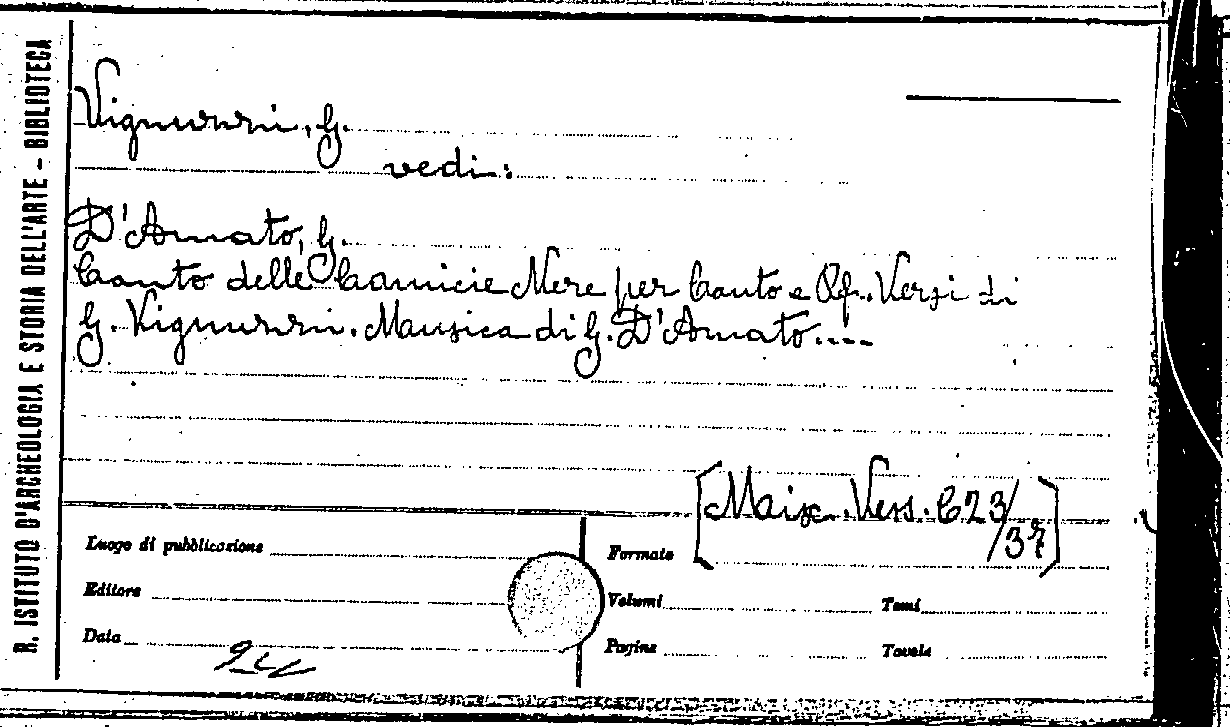 R. ISTITUTO D'ARCHEOLOGIA E STORIA DELL'ARTE - BIBLIOTECA
Vignuzzi, G.
vedi:
D'Amato, G.
Canto delle Camicie Nere per Canto e Pf. Versi di
G. Vignuzzi. Musica di G. D'Amato....
[Misc. Vess. C 23/37]
Luogo di pubblicazione
Formato
Editore
Volumi
Tomi
Data
Pagine
Tavole